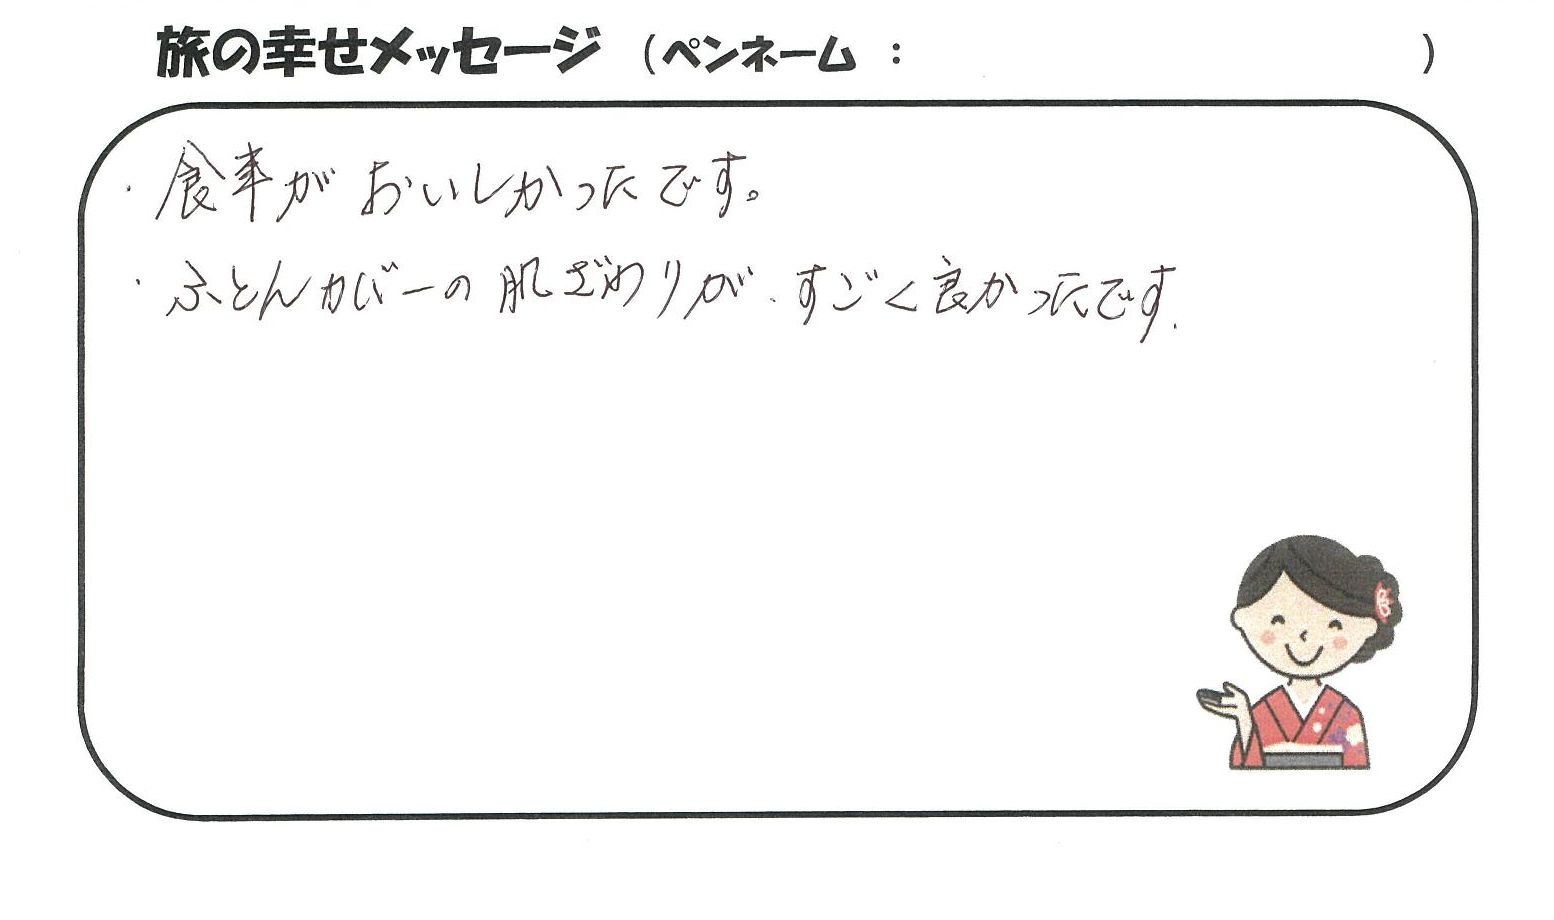 旅の幸せメッセージ （ペンネーム ： ）
・食事がおいしかったです。
・ふとんカバーの肌ざわりが、すごく良かったです.